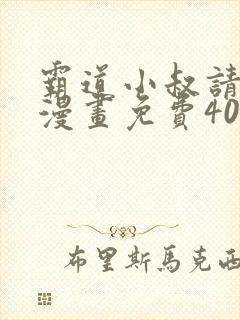 霸道小叔請
漫畫免費40
布里斯馬克西